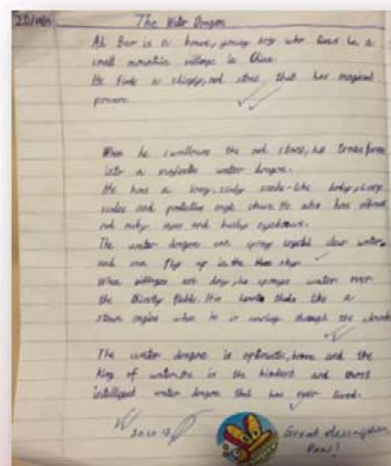 The Water Dragon
Ah Bao is a brave, young boy who lives in a
small mountain village in China.
He finds a shiny, red stone that has magical
powers.
When he swallows the red stone, he transforms
into a majestic water dragon.
He has a long, scaly snake-like body,
scales and protective eagle claws. He also has vibrant,
red ruby eyes and bushy eyebrows.
The water dragon can spray crystal clear water
and can fly up in the sky.
When villages are dry, he sprays water over
the thirsty fields. His like a
steam engine when he is through the clouds
The water dragon is optimistic, brave and the
king of water. He is the kindest and most
intelligent water dragon that has ever lived.
Great description